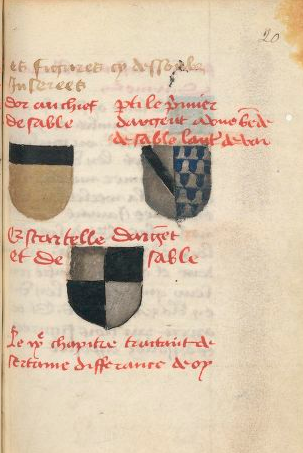 20
et figures cy dessoubz
Inserees
dor au chief
de sable
pti le pmier
dargent a une bede
de sable laut de var
Escartelle dargēt
et de sable
Le chapitre traitant de
certaine differance de